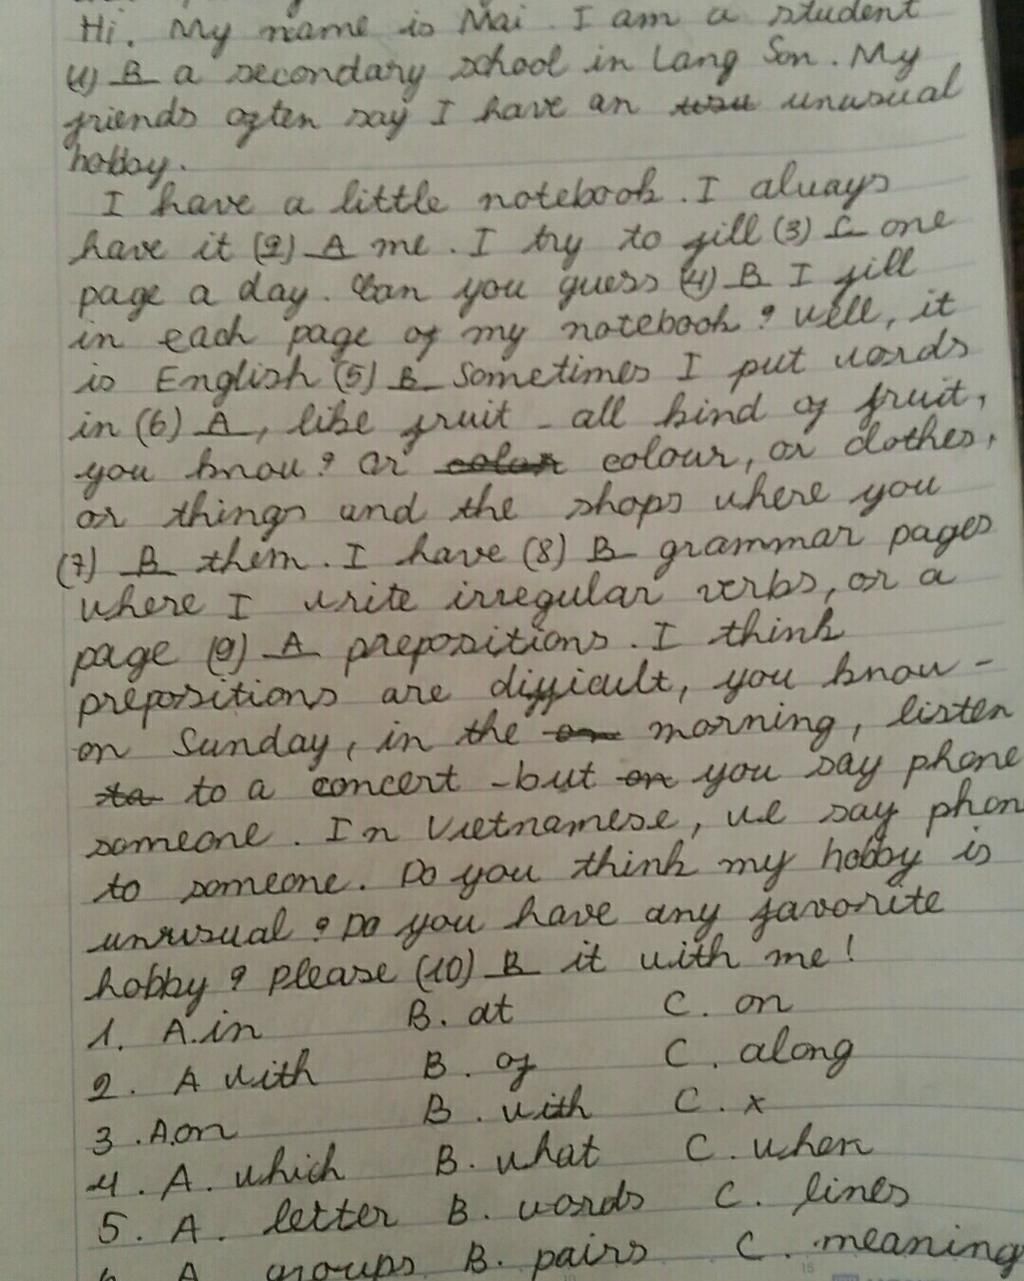 Hi. My name is Mai. I am a student
(1) B a secondary school in Lang Son. My
friends often say I have an unusual
hobby.
I have a little notebook. I always
have it (2) A me. I try to fill (3) C one
page a day. Can you guess (4) B I fill
in each page of my notebook? Well, it
is English (5) B Sometimes I put words
in (6) A, like fruit - all kind of fruit,
you know? Or colour, or clothes,
or things and the shops where you
(7) B them. I have (8) B grammar pages
where I write irregular verbs, or a
page (9) A prepositions. I think
prepositions are difficult, you know -
on Sunday, in the morning, listen
to a concert - but you say phone
someone. In Vietnamese, we say phon
to someone. Do you think my hobby is
unusual? Do you have any favorite
hobby? please (10) B it with me!
1. A. in B. at C. on
2. A with B. of C. along
3. A. on B. with C. x
4. A. which B. what C. when
5. A. letter B. words C. lines
6 A groups B. pairs C. meaning